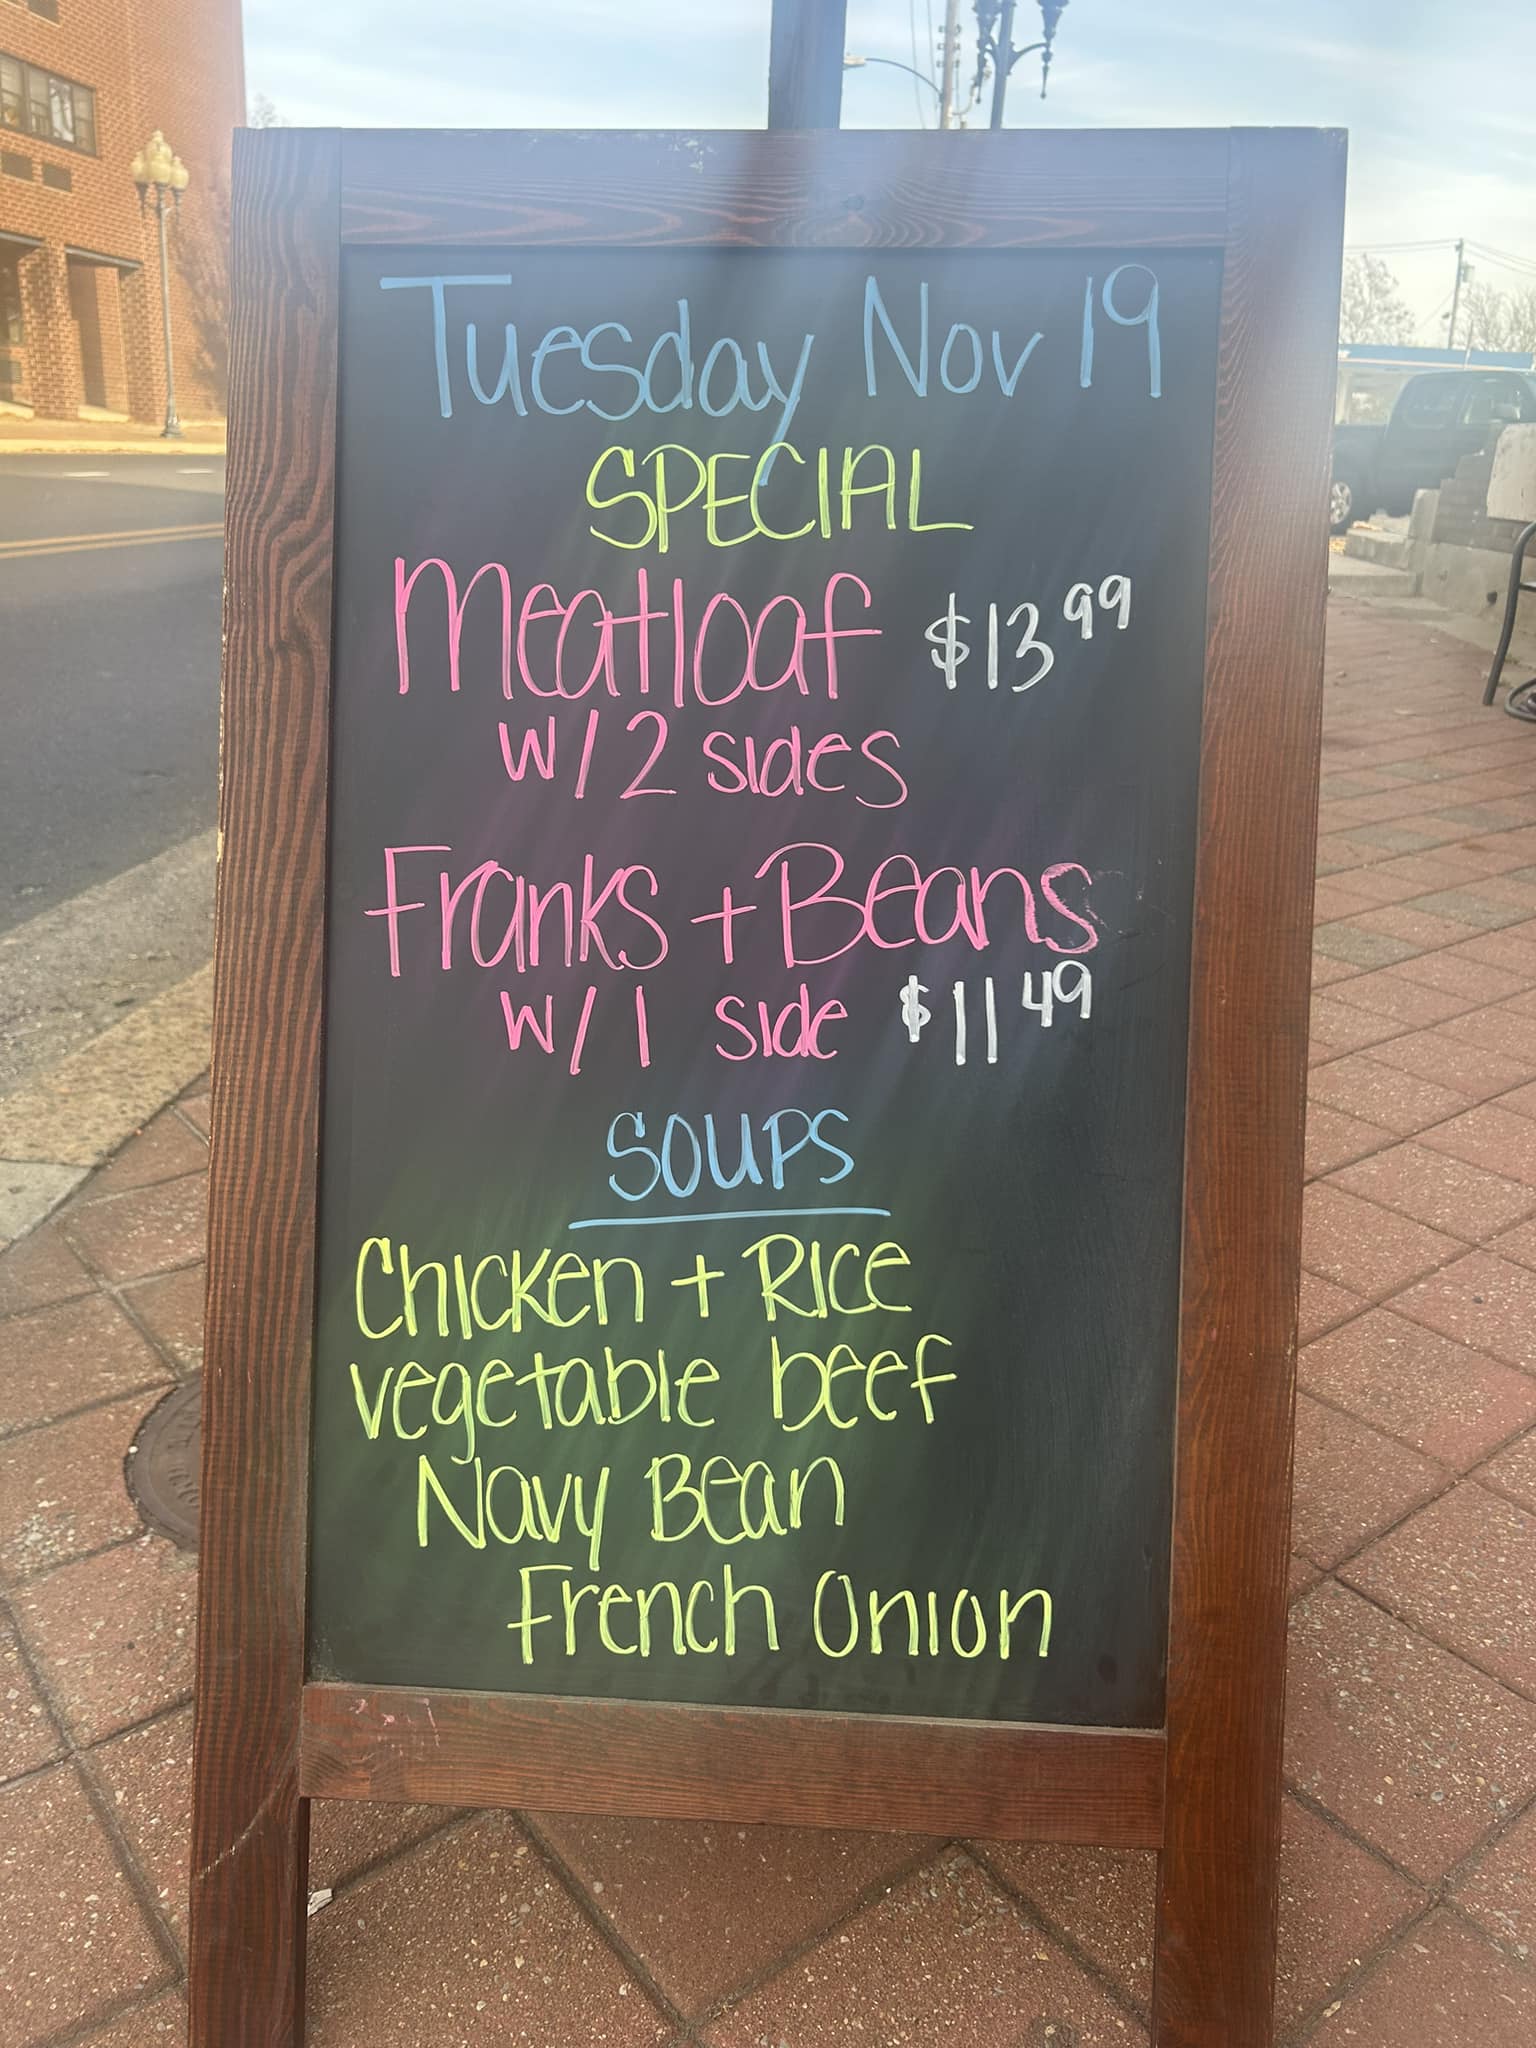 Tuesday Nov 19
SPECIAL
Meatloaf $13.99
w/2 sides
Franks + Beans
w/1 side $11.49
SOUPS
Chicken + Rice
vegetable beef
Navy Bean
French Onion